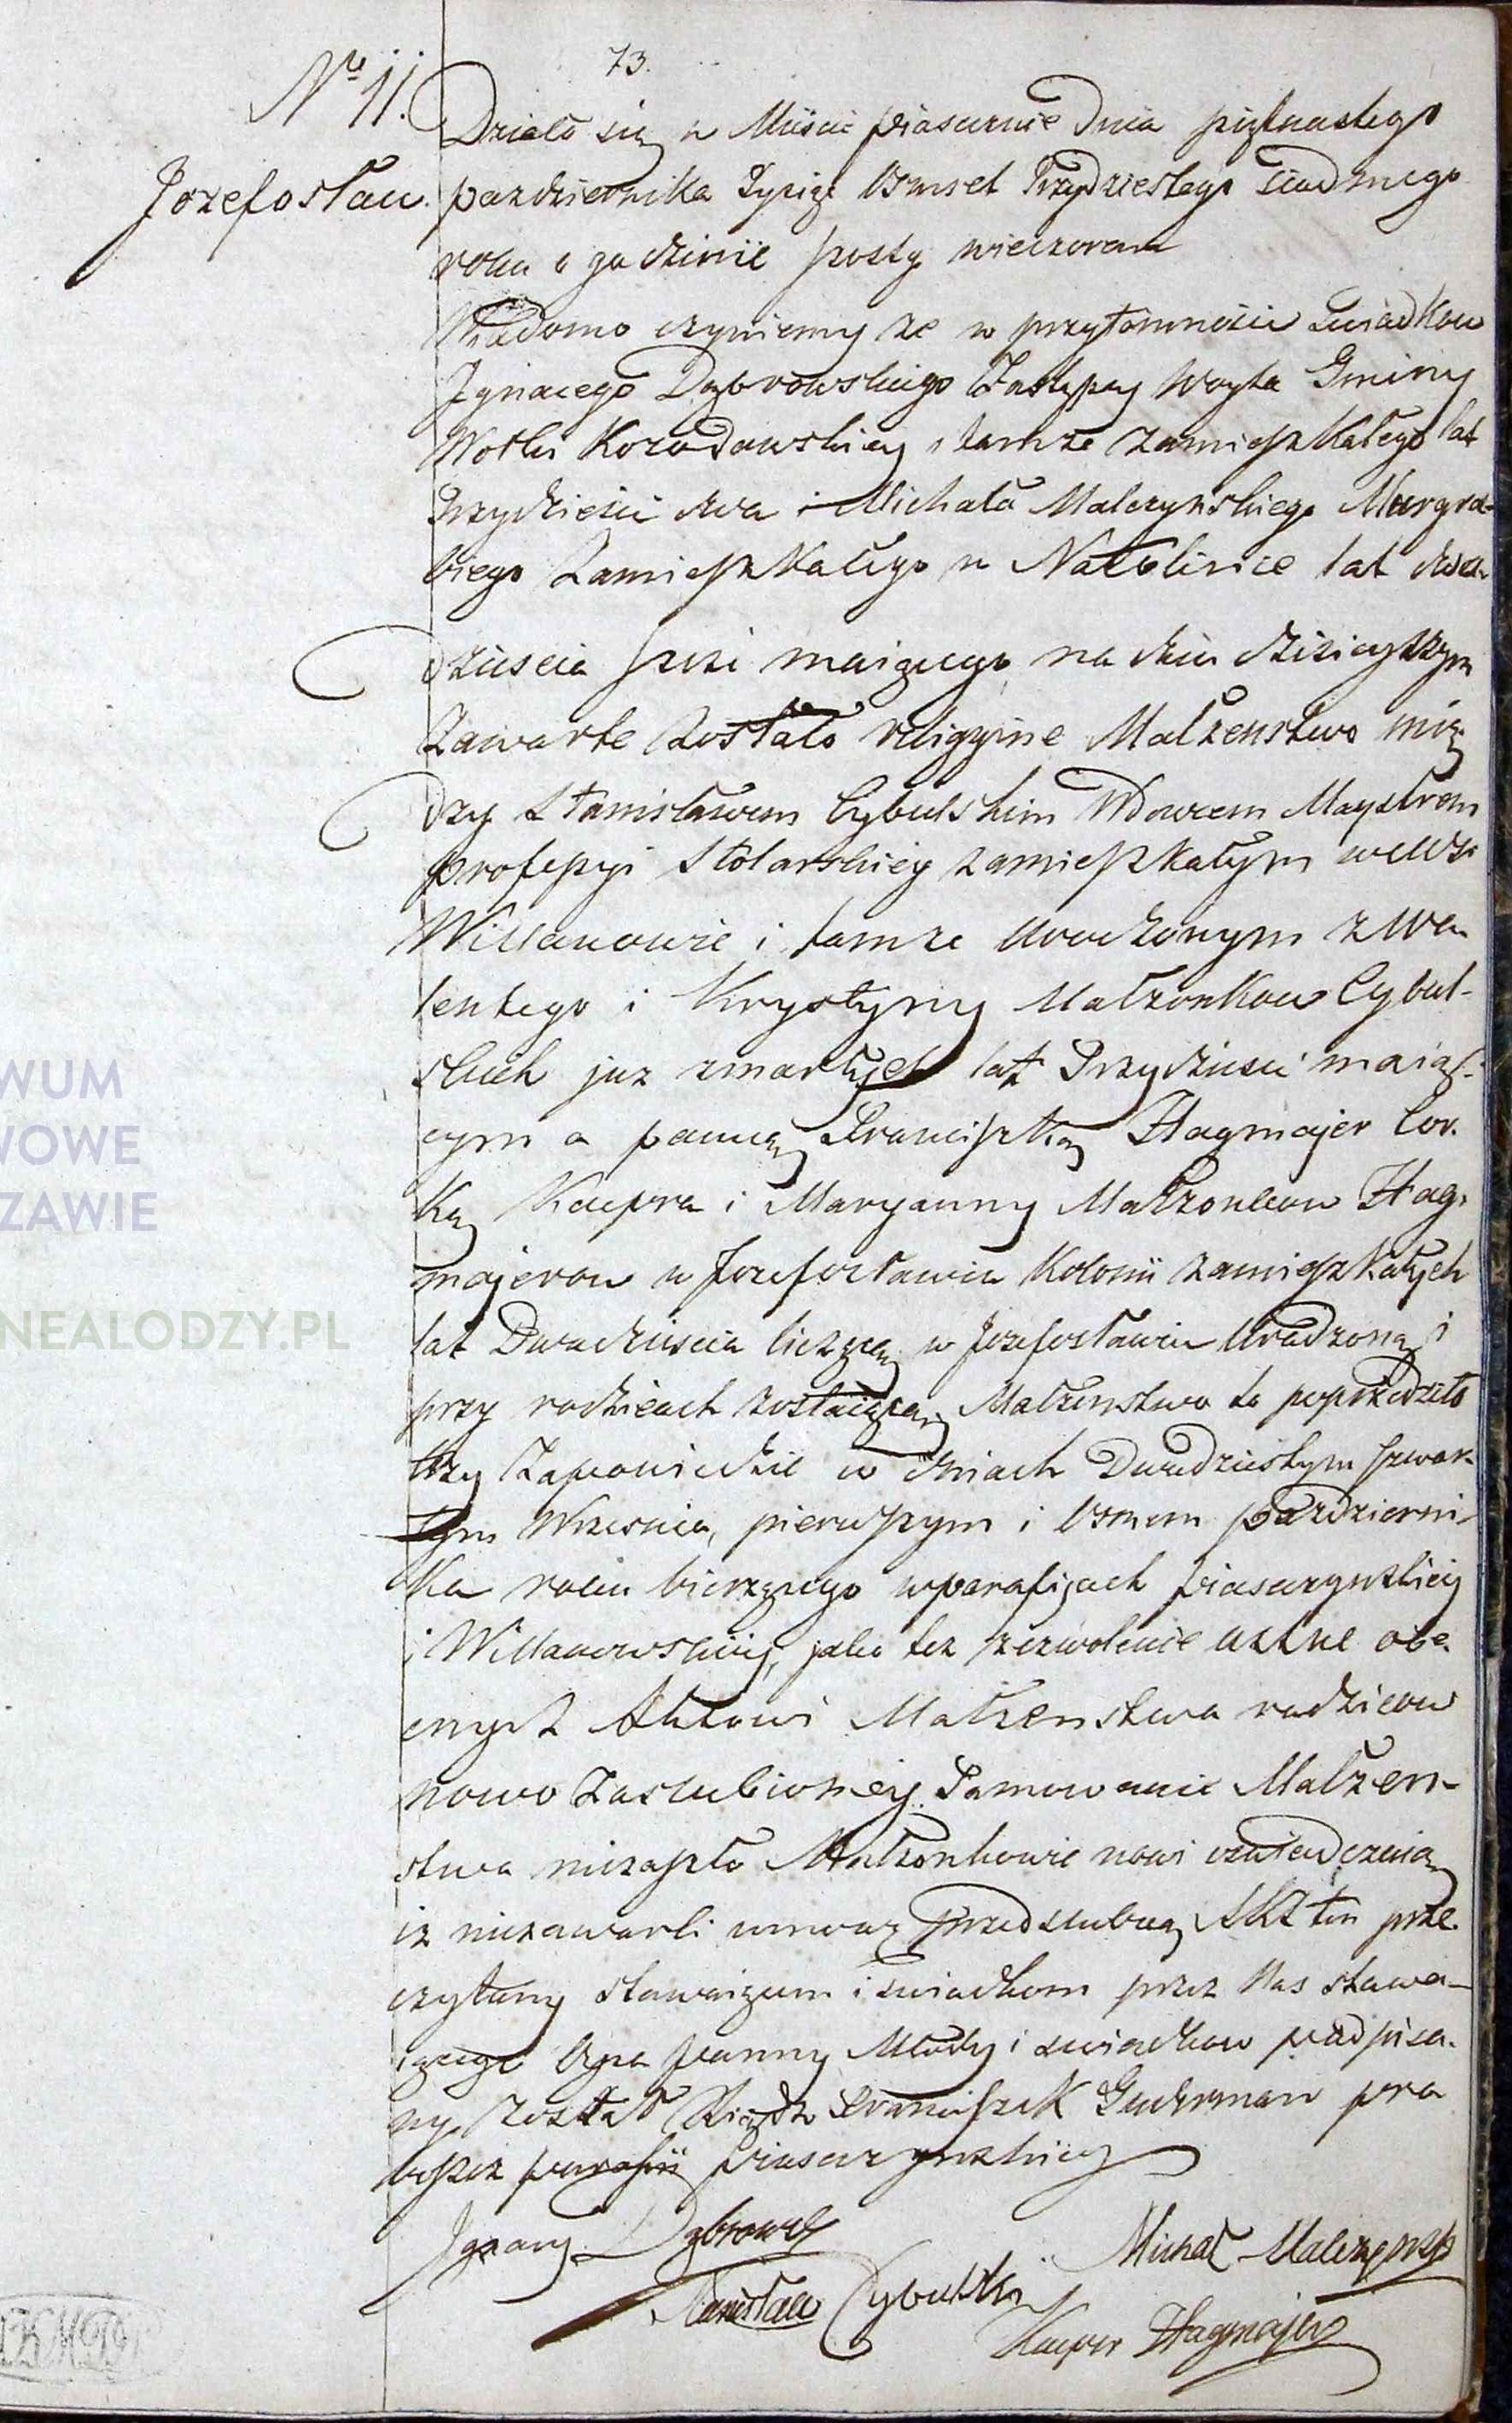 73.
Nro 11.
Jozefosław.
Działo się w Mieście Piasecznie Dnia piętnastego
pazdziernika Tysiąc Osmset Trzydziestego siodmego
roku o godzinie szosty wieczorem
Wiadomo czyniemy ze w przytomności Swiadkow
Jgnacego Dąbrowskiego Zastępcy Woyta Gminy
Wolki Kozodawskiey tamze zamieszkałego lat
Trzydzieści dwa i Michała Malczynskiego Murgra-
biego Zamieszkałego w Natolinie lat dwa-
dziescia sześć maiącego, na dniu dzisieyszym
Zawarte zostało religyine Małzenstwo mię
dzy Stanisławem Cybulskim Wdowcem Maystrem
professyi Stolarskiey zamieszkałym we wsi
Willanowie i tamze urodzonym z Wa-
lentego i Krystyny Małzonkow Cybul-
skich juz zmarłych lat Trzydziesci maiąc-
cym a panną Franciszką Hagmajer Cor-
ką Kacpra i Maryanny Małzonkow Hag-
majerow w Jozefosławiu Kolonii zamieszkałych
lat Dwadziescia liczącą w Jozefosławiu Urodzoną i
przy rodzicach zostaiącą, Małzenstwo to poprzedziło
trzy Zapowiedzie w dniach Dwudziestym czwar-
tym Wrzesnia, pierwszym i Osmem pazdzierni-
ka roku bierzącego w parafijach Piasczynskiey
i Willanowskiey, jako tez zezwolenie ustne obe-
cnych Aktowi Małzenstwa rodzicow
nowo Zaslubioney. Tamowanie Małzen-
stwa niezaszło Małzonkowie nowi oswiadczaią
iz niezawarli umowę przedslubną Akt ten prze-
czytany stawaiącem i swiadkom przez Nas stawa-
iącego Oyca panny Młody i swiadkow podpisa-
ny został Xiądz Franciszek Guderman pro
boszcz parafii Piaseczynskiey
Jgnacy Dąbrowski
Michał Malczynski
Stanisław Cybulski
Kacper Hagmajer
WUM
WOWE
ZAWIE
NEALODZY.PL